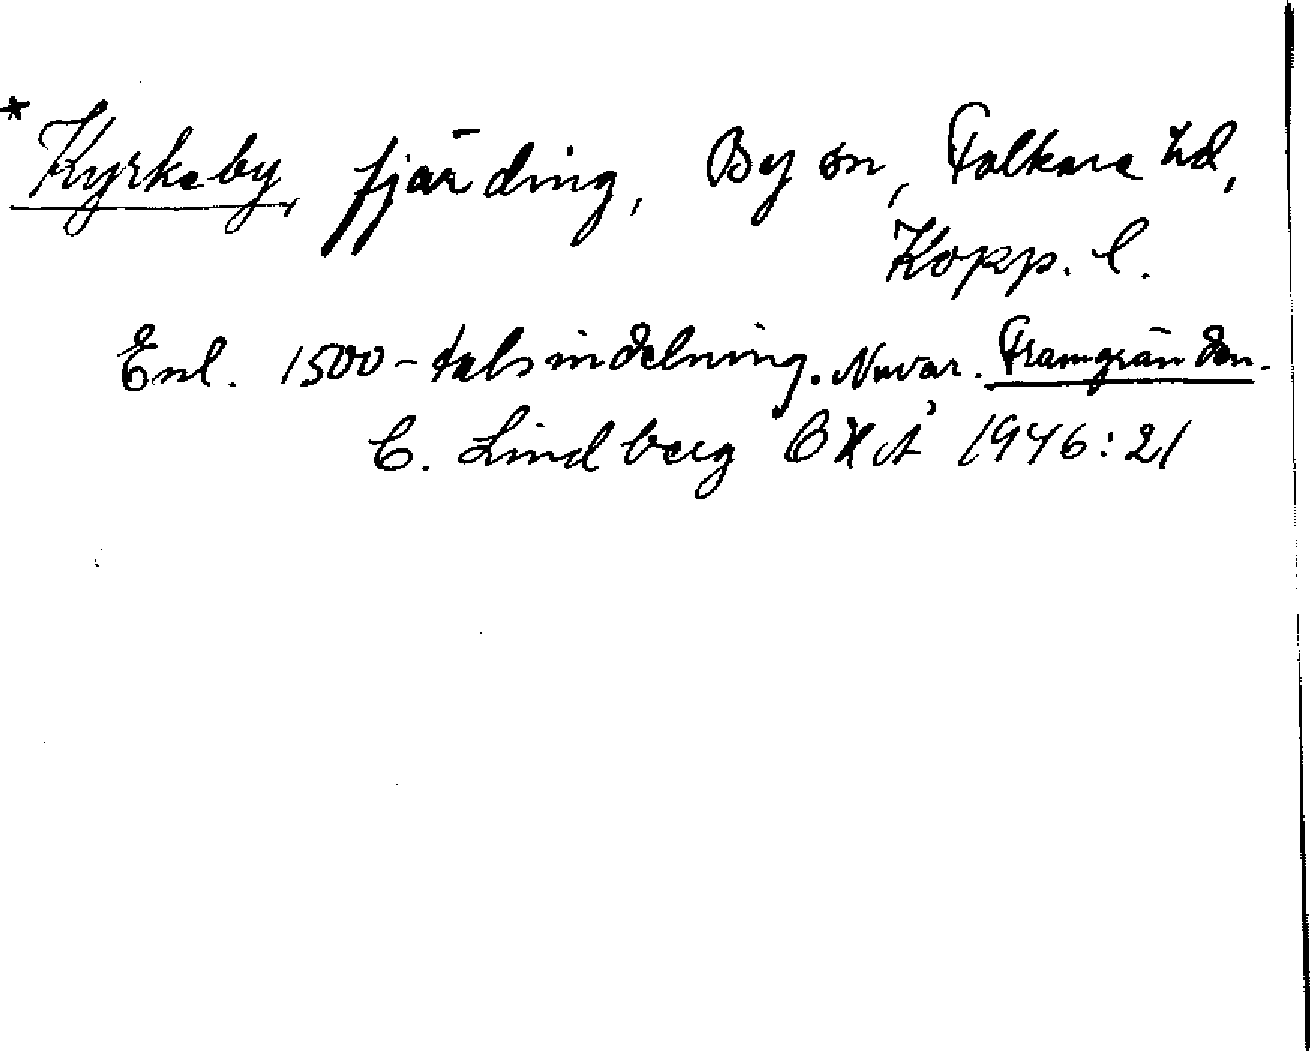 * Kyrkeby fjärding, By sn, Folkare hd,
Kopp. l.
Enl. 1500-talsindelning. Nuvar. Framgränden.
C. Lindberg 1946:21